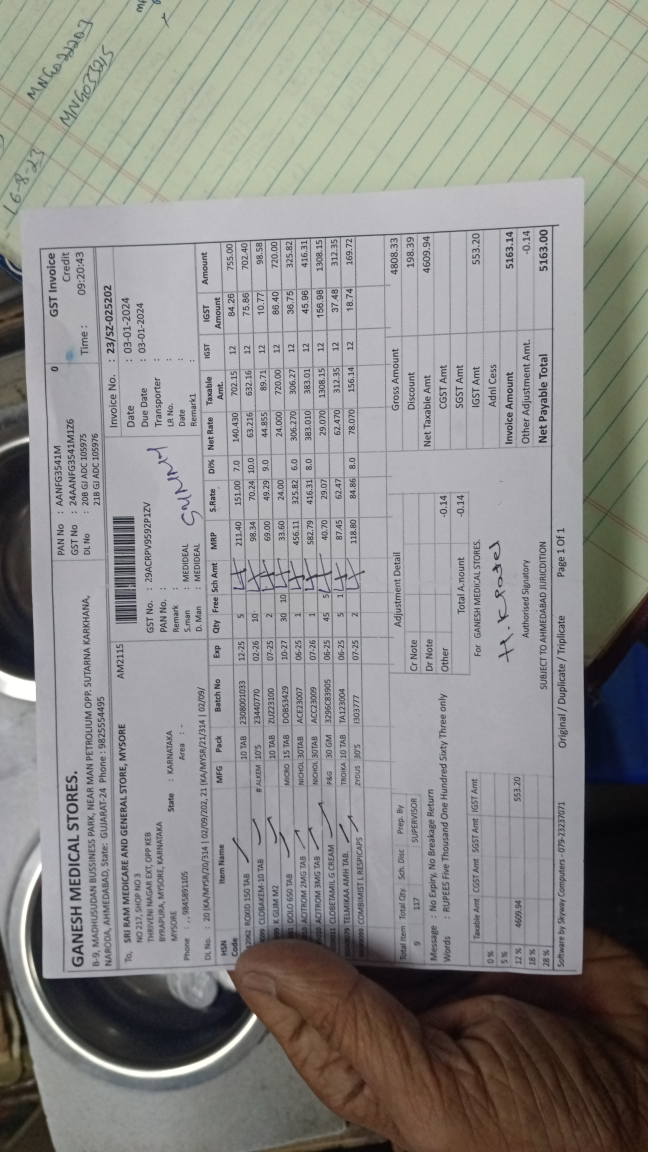 16-8-23
MNG022203
MNG033215
GANESH MEDICAL STORES.
B-9, MADHUSUDAN BUSSINESS PARK, NEAR MAN PETROLIUM OPP. SUTARNA KARKHANA,
NARODA, AHMEDABAD, State: GUJARAT-24 Phone : 9825554495
PAN No : AANFG3541M
GST No : 24AANFG3541M1Z6
DL No : 20B GJ ADC 105975
21B GJ ADC 105976
0
GST Invoice
Credit
Time : 09:20:43
To, SRI RAM MEDICARE AND GENERAL STORE, MYSORE
AM2115
NO 217, SHOP NO 3
THRIVENI NAGAR EXT, OPP KEB
BYRAPURA, MYSORE, KARNATAKA
MYSORE
State : KARNATAKA
Phone : , , 9845891105 Area : -
DL No. : 20 |KA/MYSR/20/314 | 02/09/202, 21 |KA/MYSR/21/314 | 02/09/
GST No. : 29ACRPV9592P1ZV
PAN No. :
Remark :
S.man : MEDIDEAL
D. Man : MEDIDEAL
Invoice No. : 23/SZ-025202
Date : 03-01-2024
Due Date : 03-01-2024
Transporter :
LR No. :
Date :
Remark1 :
HSN Code Item Name MFG Pack Batch No Exp Qty Free Sch Amt MRP S.Rate Di% Net Rate Taxable Amt. IGST IGST Amount Amount
ACXID 150 TAB 10 TAB 2308001033 12-25 5 211.40 151.00 7.0 140.430 702.15 12 84.26 755.00
CLOBAKEM-10 TAB # ALKEM 10'S 23440770 02-26 10 98.34 70.24 10.0 63.216 632.16 12 75.86 702.40
K GLIM M2 10 TAB ZUZ23100 07-25 2 69.00 49.29 9.0 44.855 89.71 12 10.77 98.58
DOLO 650 TAB MICRO 15 TAB DOBS3429 10-27 30 10 33.60 24.00 24.000 720.00 12 86.40 720.00
ACITROM 2MG TAB NICHOL 30TAB ACE23007 06-25 1 456.11 325.82 6.0 306.270 306.27 12 36.75 325.82
ACITROM 3MG TAB NICHOL 30TAB ACC23009 07-26 1 582.79 416.31 8.0 383.010 383.01 12 45.96 416.31
GLOBETAMIL G CREAM P&G 30 GM 3296C83905 06-25 45 5 40.70 29.07 29.070 1308.15 12 156.98 1308.15
TELMIKAA AMH TAB. TROIKA 10 TAB TA123004 06-25 5 1 87.45 62.47 62.470 312.35 12 37.48 312.35
COMBIMIST L RESPICAPS ZYDUS 30'S I303777 07-25 2 118.80 84.86 8.0 78.070 156.14 12 18.74 169.72
Total Item Total Qty. Sch. Disc Prep. By
9 117 SUPERVISOR
Message : No Expiry, No Breakage Return
Words : RUPEES Five Thousand One Hundred Sixty Three only
Adjustment Detail
Cr Note
Dr Note
Other -0.14
Total Amount -0.14
Gross Amount 4808.33
Discount 198.39
Net Taxable Amt 4609.94
CGST Amt
SGST Amt
IGST Amt 553.20
Adnl Cess
Invoice Amount 5163.14
Other Adjustment Amt. -0.14
Net Payable Total 5163.00
Taxable Amt CGST Amt SGST Amt IGST Amt
0 %
5 %
12 % 4609.94 553.20
18 %
28 %
For GANESH MEDICAL STORES.
Authorised Signatory
SUBJECT TO AHMEDABAD JURICDITION
Software by Skyway Computers - 079-23237071
Original / Duplicate / Triplicate
Page 1 Of 1